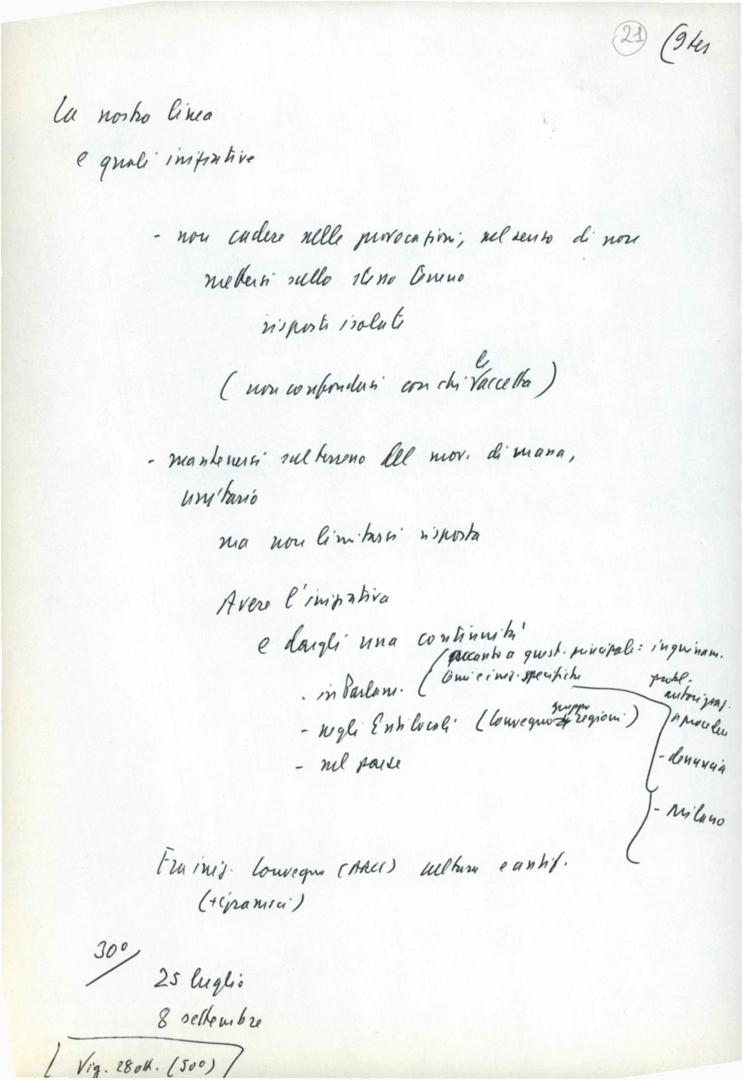 21 (9 ter
La nostra linea
e quali iniziative
- non cadere nelle provocazioni, nel senso di non
mettersi sullo stesso terreno
risposte isolate
(non confondersi con chi le accetta)
- mantenersi sul terreno del mov. di massa,
unitario
ma non limitarsi risposta
Avere l'iniziativa
e dargli una continuità
(accanto a quest. principale: inquinam.
- in Parlam. temi e iniz. specifiche
probl.
autorizzaz.
- negli Enti locali (Convegno gruppo regioni) a procedere
- nel paese - denuncia
- Milano
Fra iniz. Convegno (ARCI) cultura e antif.
(+ Gramsci)
30°
25 luglio
8 settembre
Vig. 28 ott. (50°)